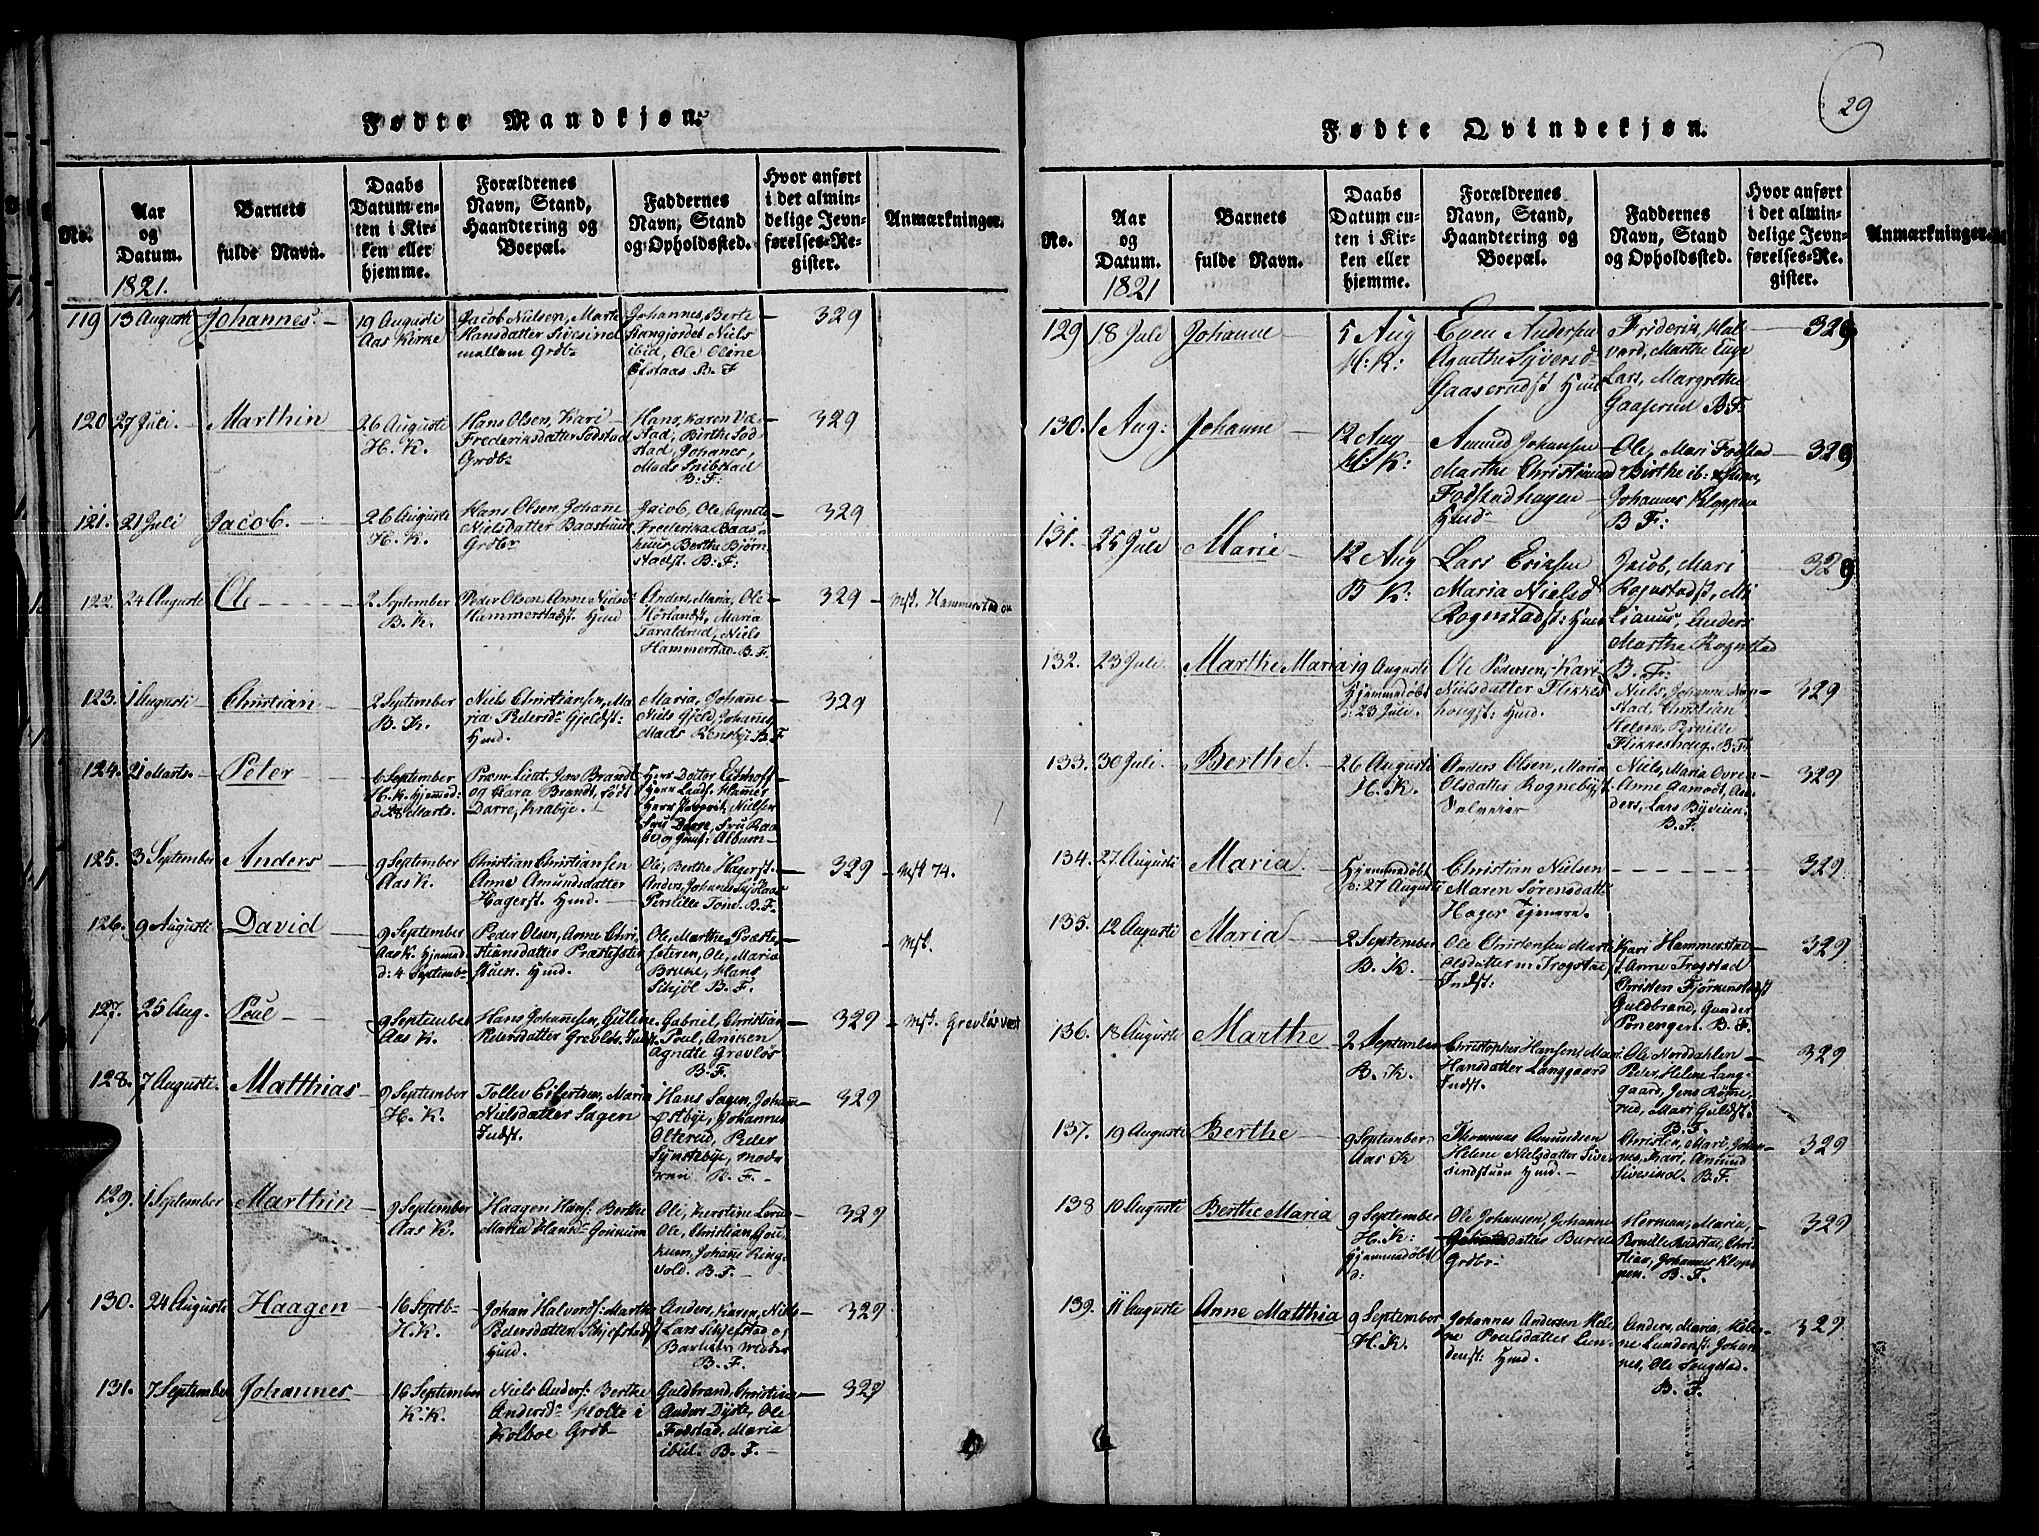 29
Fødte Mandkjøn.
No.
Aar
og
Datum.
1821.
Barnets
fulde Navn.
Daabs
Datum en-
ten i Kir-
ken eller
hjemme.
Forældrenes
Navn, Stand,
Haandtering og
Boepæl.
Faddernes
Navn, Stand
og Opholdssted.
Hvor anført
i det almin-
delige Jevn-
førelses-Re-
gister.
Anmærkninger.
119
13 Augusti
Johannes.
19 Augusti
Aas Kirke
Jacob Nielsen, Marte
Hansdatter Sivesind
mellem Grdb
Johannes, Berte
Stangjordet Niels
ibid, Ole Oline
B. F
329
120
27 Juli.
Marthin
26 Augusti
H. K.
Hans Olsen, Kari
Frederiksdatter Sodstad
Grdb
Hans, Karen
stad, Birthe Sod
stad, Johanes,
Mads
B. F:
329
121.
21 Juli
Jacob.
26 Augusti
H. K.
Hans Olsen, Johane
Nielsdatter Baashuus
Grdbr
Jacob, Ole Agnete
Frederika Baas
huus, Berthe Bjørn
stadst. B: F:
329
122.
24 Augusti
Ole
2 September
B. K.
Peder Olsen, Anne Nielsd
Hammerstadst. Hund
Anders, Maria, Ole
Hørlandst, Maria
Taraldrud, Niels
Hammerstad. B. F.
329
Mst. Hammerstad
123.
1 Augusti
Christian
2 September
B. K.
Niels Christiansen, Ma
ria Pedersdr Gjeldst:
Hund.
Maria, Johane
Niels Gjeld Johanes,
Mads Rensbye B. F
329
124.
21 Marts.
Peter
6 September
H. K. Hjemmed
d 28 Marts.
Prem: Lieut. Jens Brandt
og Kara Brandt, født
Darre, Krabye.
Herr Docter Eichhoff
Herr Hammer
Herr Nielsen
Fru Darre, Fru Raa
Album
125.
3 September
Anders
9 September
Aas K.
Christian Christiansen
Anne Amundsdatter
Hagerst. Hund.
Ole, Berthe Hagerst.
Anders, Johanes
Pernille Tone. B. F.
329
Mst 74.
126.
9 Augusti
David
9 September
Aas K. hjemmed
d: 4 Septemb
Peder Olsen, Anne Chri
stiansdatter Præstesæter
stuen. Hund.
Ole, Marthe Præste
seteren, Ole, Maria
Brune, Hans
Skjøl B. F.
Mst.
127.
25 Aug.
Poul
9 September
Aas K.
Hans Johannesen, Gulene
Pedersdatter Grevløs. Indst.
Gabriel, Christian
Poul, Anniken
Agnette Grevløs
B. F.
329
Mst. Grevløs vest
128.
7 Augusti.
Matthias
9 September
H. K.
Tollev Eilertsen, Maria
Nielsdatter Sagen
Indst.
Hans Sagen, Johanne
Østbye, Johannes
Alterud, Peder
Synstebye,
B. F.
329
129.
1 September
Marthin
9 September
Aas K.
Haagen Hans: Berthe
Maria Hansdr Gonkum
Ole, Kerstine
Ole, Christian,
kum, Johane Ring
vold. B. F.
329
130.
24 Augusti
Haagen
16 Septb
H. K.
Johan Halvords: Marthe
Pedersdatter Schjefstadst
Hund.
Anders, Karen, Niels
Lars Schjefstad og
B. F.
329
131.
7 September
Johannes
16 September
K. K.
Niels Anders: Berthe
Andersdr Holte i
Kolboe Grdb
Guldbrand, Christine
Anders Dyste, Ole
Fodstad, Maria
ibid. B. F.
329
Fødte Qvindekjøn.
No.
Aar
og
Datum.
1821
Barnets
fulde Navn.
Daabs
Datum en-
ten i Kir-
ken eller
hjemme.
Forældrenes
Navn, Stand,
Haandtering og
Boepæl.
Faddernes
Navn, Stand
og Opholdssted.
Hvor anført
i det almin-
delige Jevn-
førelses-Re-
gister.
Anmærkninger.
129
18 Juli
Johanne
5 Aug
H: K:
Even Andersen
Agnethe Syversd
Gaaserudst Hund
Friderik, Hal
vard, Marthe Enge
Lars, Margrethe
Gaaserud B. F.
329
130.
1 Aug:
Johanne
12 Aug
H: K:
Amund Johansen
Marthe Christiansd
Fodstadhagen
Hund
Ole, Mari Fodstad
Birthe ib:
Johannes Kloppen
B F:
329
131.
25 Juli
Marie
12 Aug
B K:
Lars Eriksen
Maria Nielsd
Rognstadst: Hund
Jacob, Mari
Rognstadst, Mi
lianus, Anders
Marthe Rognstad
B. F:
329
132.
23 Juli.
Marthe Maria
19 Augusti
Hjemmedøbt
d: 23 Juli.
Ole Pedersen, Kari
Nielsdatter Flikkes
hougst: Hund.
Niels, Johanne
stad, Christian
Helene, Pernille
Flikkeshoug. B. F
329
133.
30 Juli.
Berthe.
26 Augusti
H. K.
Anders Olsen, Maria
Olsdatter Rognebyst
Selveier
Niels, Maria
Anne Aamodt, An
ders, Lars Byveien.
B. F.
329
134.
27 Augusti
Maria.
Hjemmedøbt
p: 27 Augusti
Christian Nielsen
Maren Sørensdatt
Hager Tjenere.
329
135.
12 Augusti
Maria
2 September
B. K.
Ole Christensen Marte
Olsdatter Trogstad
Indst:
Kari Hammersta
Anne Trogstad
Christen
Guldbrand, Gunder
Ponengen. B. F.
329
136.
18 Augusti
Marthe
2 September
B. K.
Christopher Hansen, Mari
Hansdatter Langgaard
Indst.
Ole Norddahlen
Peder, Helene Lang
gaard, Jens Røtne
rud, Mari Guldst.
B. F.
329
137.
19 Augusti
Berthe
9 September
Aas K
Thomas Amundsen
Helene Nielsdatter Sive
sindstuen Hund.
Christen, Mari, Johan
nes, Kari, Amund
Sivesind. B. F.
329
138
10 Augusti
Berthe Maria
9 September
H. K:
Hjemmedøbt
d:
Ole Johansen, Johanne
datter
Grdbr
Herman, Maria,
Pernille Chri
stian, Johannes Klop
pen. B. F.
329
139.
11 Augusti
Anne Matthia
9 September
H. K.
Johannes Andersen Hele
ne Poulsdatter Lun
denst: Hund.
Anders, Maria, Hele
ne Lundenst: Johan
nes, Ole Sougstad.
B. F.
329